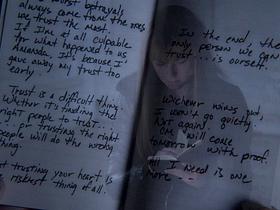 worst betrayals
always come from the ones
we trust the most.
I I'm at all culpable
for what happened to us
Amanda. It's because I
gave away my trust too
early.
Trust is a difficult thing.
Whether it's finding the
right people to trust...
trusting the right
people will do the wrong
thing.
trusting your heart is
riskiest thing of all.
In the end, the
only person we can
trust ... is ourself.
Whichever wins out,
I won't go quietly.
Not again.
will come
tomorrow with proof.
All I need is one
more